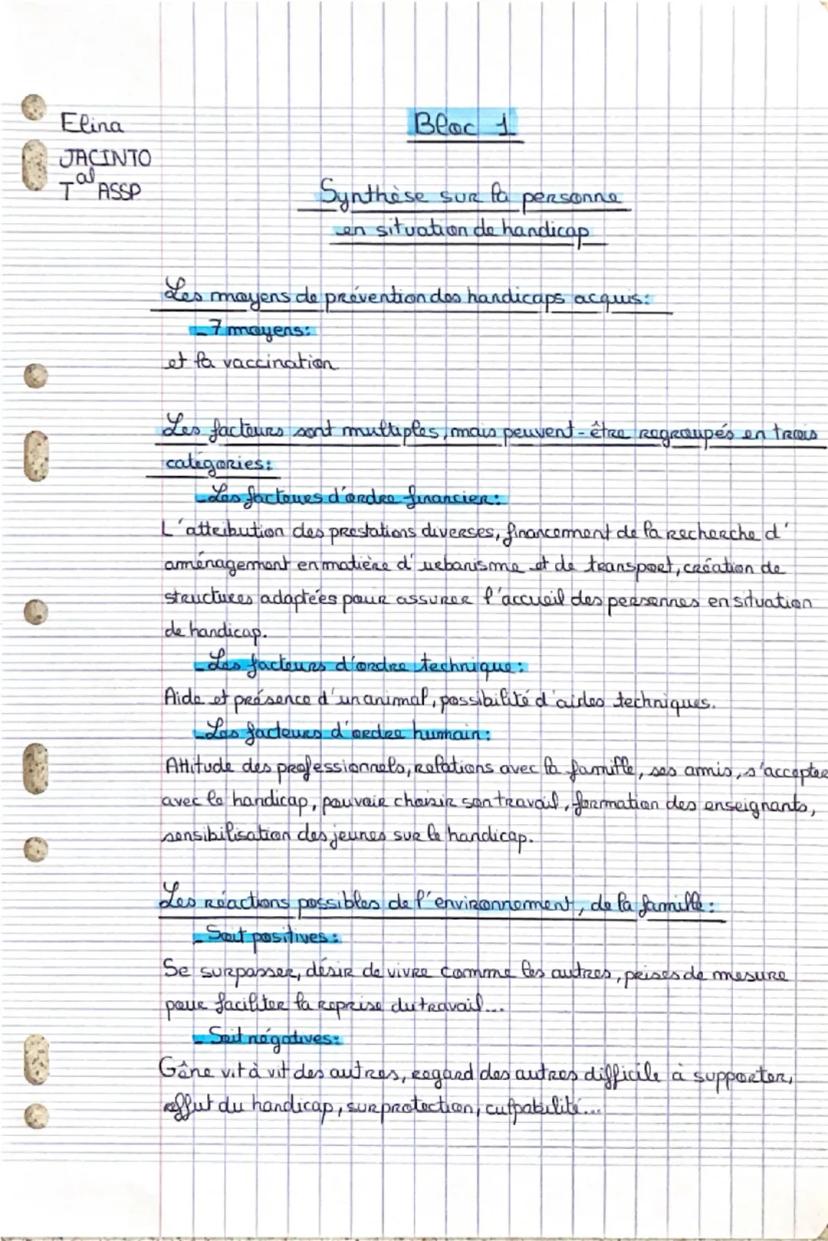 Elina
JACINTO
Tal ASSP
Bloc 1
Synthèse sur la personne
en situation de handicap
Les moyens de prévention des handicaps acquis:
- 7 moyens:
et la vaccination
Les facteurs sont multiples, mais peuvent-être regroupés en trois
catégories:
- Les facteurs d'ordre financier:
L'attribution des prestations diverses, financement de la recherche d'
aménagement en matière d'urbanisme et de transport, création de
structures adaptées pour assurer l'accueil des personnes en situation
de handicap.
- Les facteurs d'ordre technique:
Aide et présence d'un animal, possibilité d'aides techniques.
- Les facteurs d'ordre humain:
Attitude des professionnels, relations avec la famille, ses amis, s'accepter
avec le handicap, pouvoir choisir son travail, formation des enseignants,
sensibilisation des jeunes sur le handicap.
Les réactions possibles de l'environnement, de la famille:
- Soit positives:
Se surpasser, désir de vivre comme les autres, prises de mesure
pour faciliter la reprise du travail...
- Soit négatives:
Gêne vit à vit des autres, regard des autres difficile à supporter,
du handicap, surprotection, culpabilité...